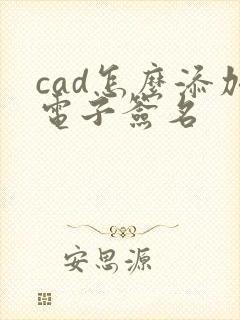 cad怎麽添加
電子簽名
安思源